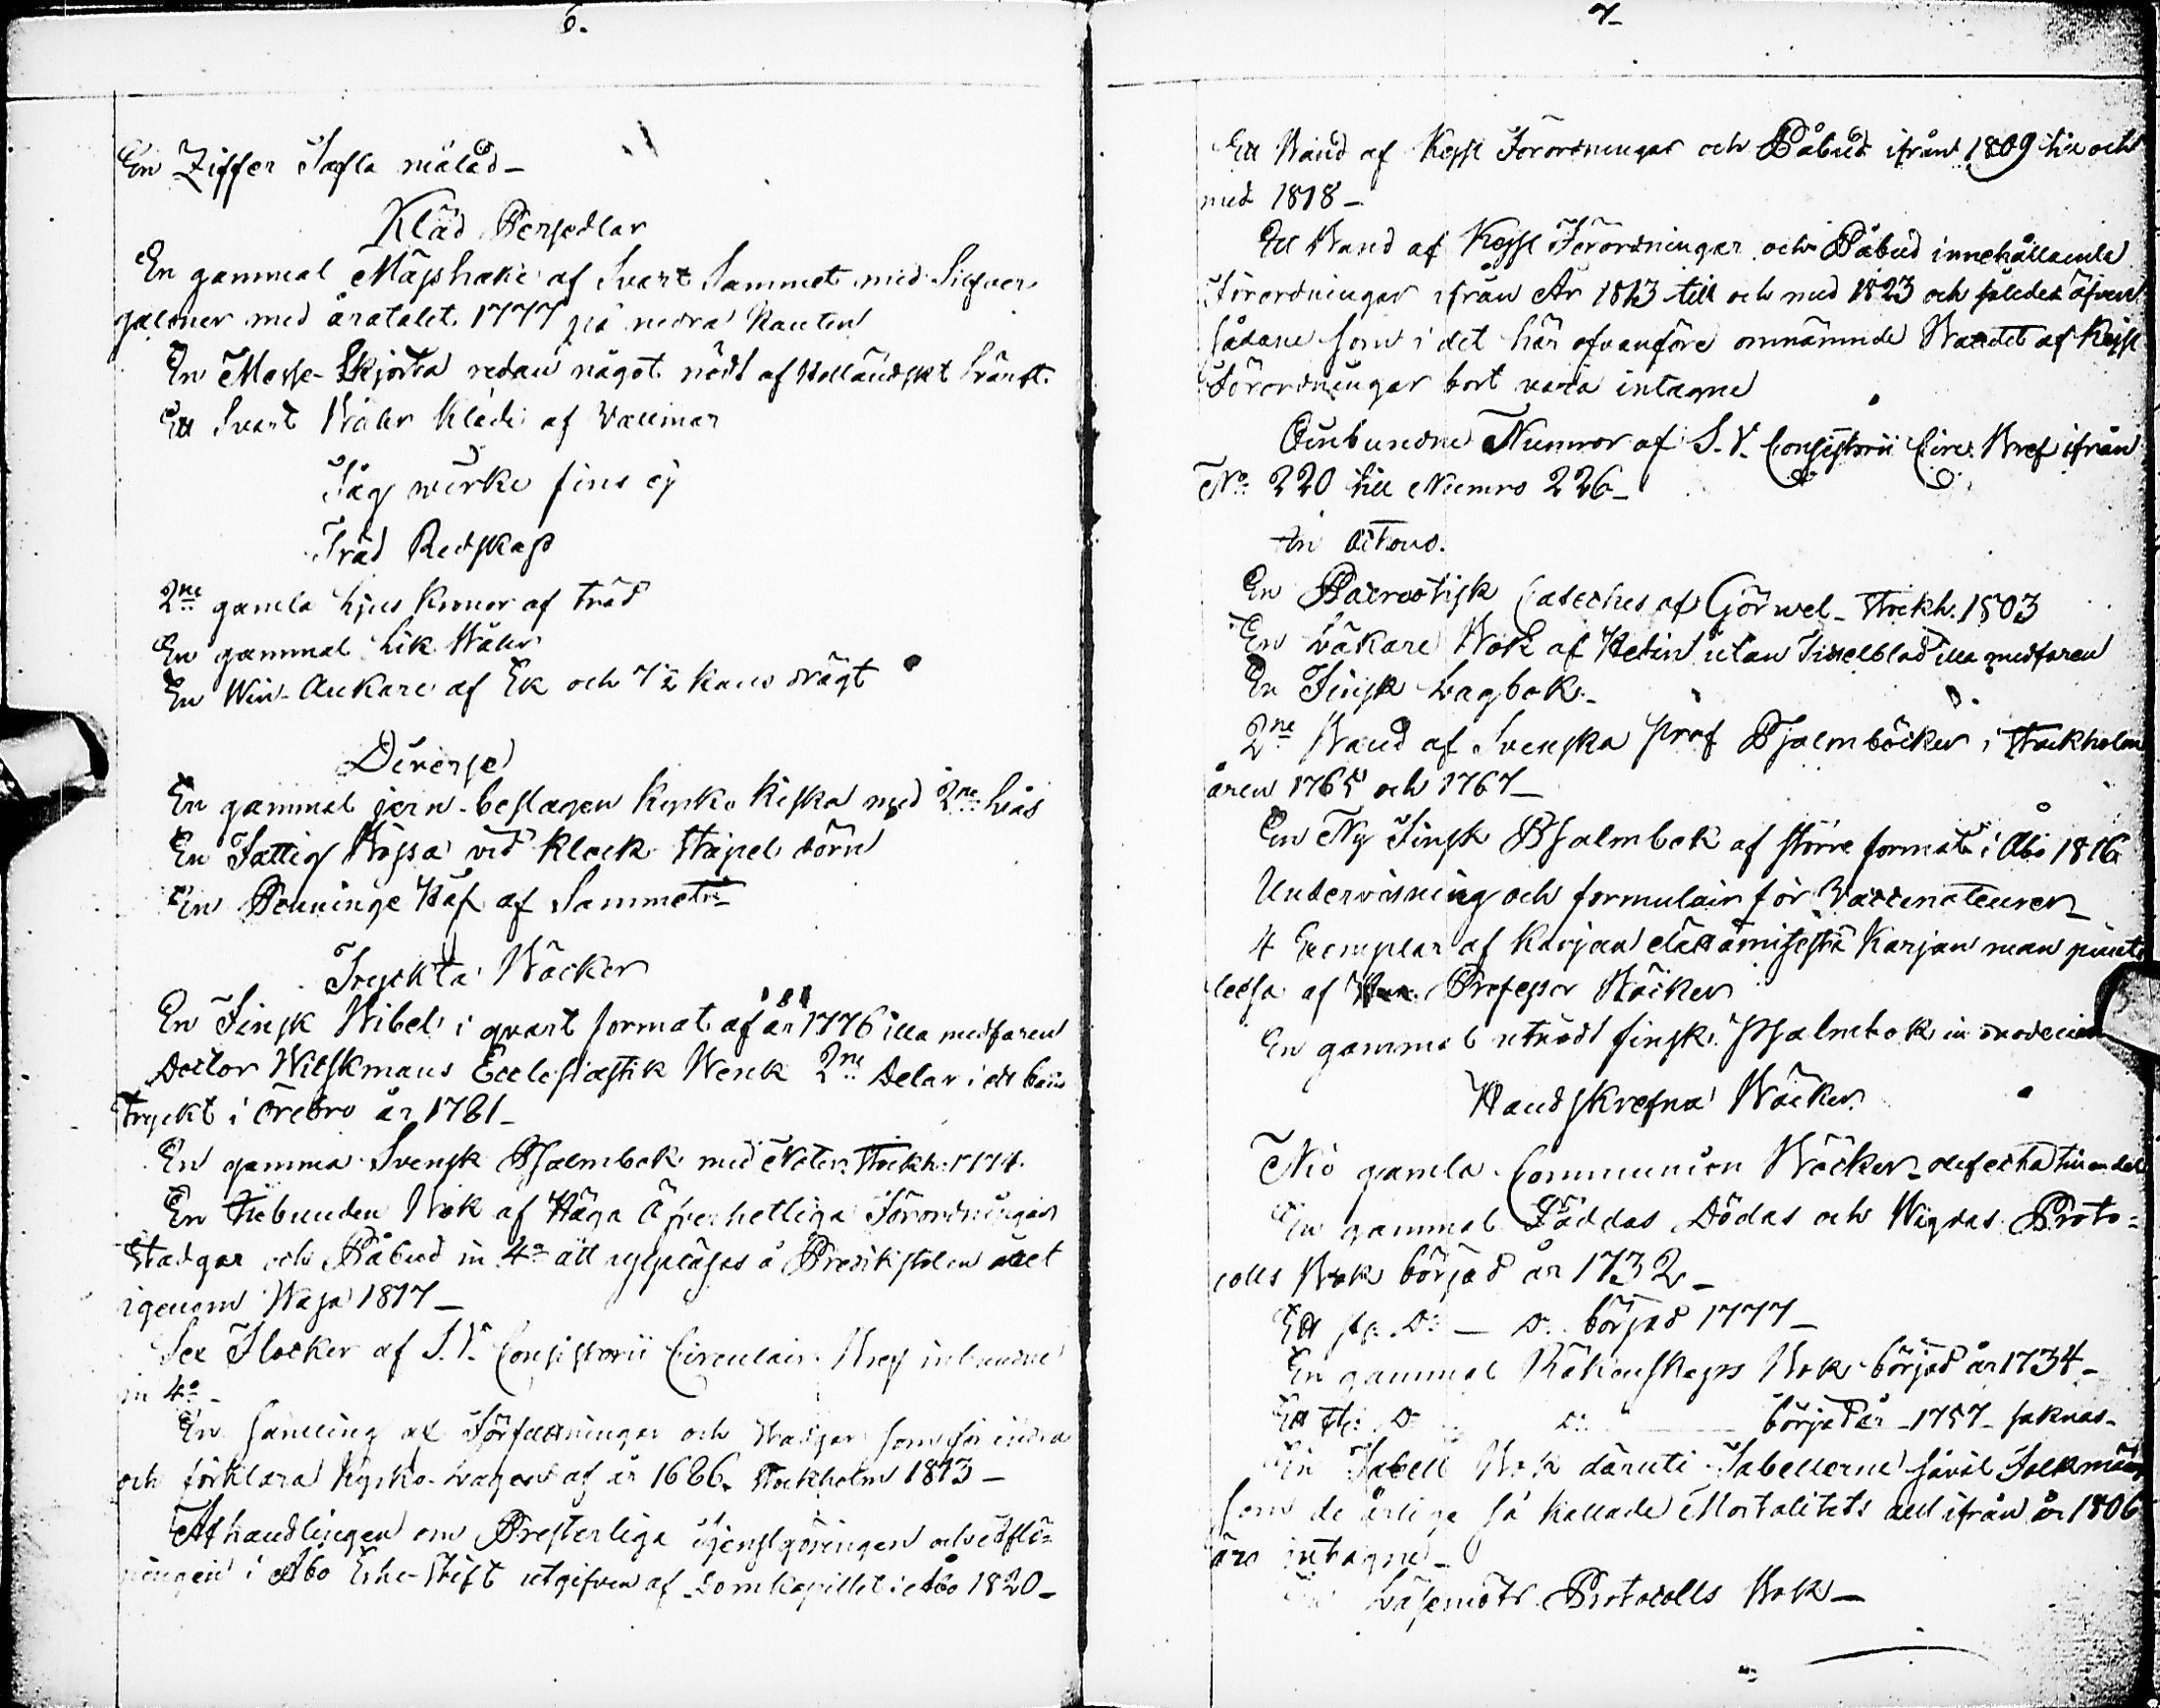 6.
En Ziffer Tafla målad_
Kläd Persedlar
En gammal Mässhake af Svart Sammet med Silfver
galoner med åratalet 1777 på nedra kanten
En Messe-Skjorta redan något nött af Holländskt Lärft.
Ett Svart Båhr kläde af Vallmar
Säg wärke fins ej
Träd Redskap
2ne gamla Ljus kronor af träd
En gammal Lik Båhr
En Win-Ankare af Ek och 7 1/2 kans drägt
Diverse
En gammal jern-beslagen kyrko kista med 2ne Lås
En Fattig Bössa vid klock stapel dörn
En Penninge Håf af Sammet_
Tryckta Böcker
En Finsk Bibel i qvart format af år 1776 illa medfaren
Doctor Wilskmans Ecclesiastik Werck 2ne Delar i ett ban
Tryckt i Örebro år 1781_
En gamma Svensk Psalmbok med Noter. Stockh. 1774.
En Inbunden Bok af Höga Öfverhetliga Förordningar
Stadgar och Påbud in 4o att uppläsas å Predikstolen året
igenom Wasa 1817_
Sex Flocker af S.V. Consistorii Circulair Bref inbundne
in 4o_
En Samling af Författningar och Stadgar som förändra
och förklara kyrko-Lagen af år 1686. Stockholm 1813_
Afhandlingen om Presterliga Tjenstgöringen och edfli=
ningen i Åbo Erke-Stift utgifven af Domkapitlet i Åbo 1820_
7_
Ett Band af Kejsl Förordningar och Påbud ifrån 1809 till och
med 1818_
Ett Band af Kejsl Förordningar och Påbud innehållande
Förordningar ifrån År 1813 till och med 1823 och således äfven
sådane som i det här ofvanföre omnämnde Bandet af Kejsl
Förordningar bort vara intagne
Oinbundne Numror af S.V. Consistorii Circ. Bref ifrån
No 220 till Numro 226_
In Octavo.
En Patriotisk Cateches af Gjörwel_ Stockh. 1803
En Läkare Bok af Hedin utan Titelblad illa medfaren
En Finsk Lagbok_
2ne Band af Svenska Prof Psalmböcker i Stockholm
åren 1765 och 1767_
En Ny Finsk Psalmbok af större format i Åbo 1816
Undervisning och formulair för Vaccinateurer_
4 Exemplar af Karjan elättämisestä Karjan man puut
leesa af Professor Böcker
En gammal utnött finsk Psalmbok in duodecim
Handskrefna Böcker
Nio gamla Communion Böcker_ defecta till en del
En gammal Föddas Dödas och Wigdas Proto=
colls Bok börjad år 1732_
Ett st: D: _ D: börjad 1777_
En gammal Räkenskaps Bok börjad år 1734_
Ett st: D: D: börjad år _1757_ saknas_
En Tabell Bok däruti Tabellerne såväl Folkmängd
som de årlige så kallade Mortalitets allt ifrån år 1806
äro intagne_
Läsemöts Protocolls Bok_